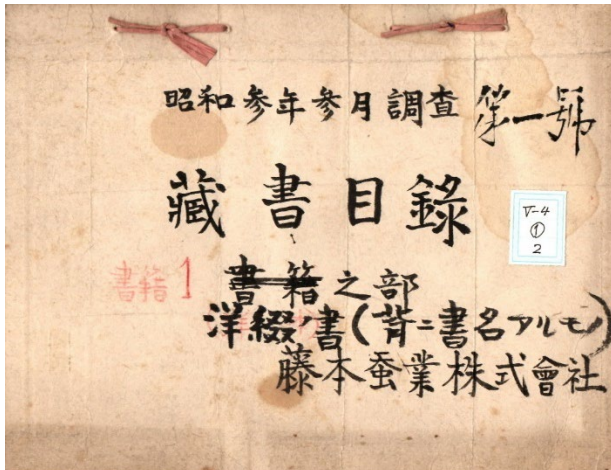 昭和参年参月調査 第一號
藏書目錄
V-4
①
2
書籍1
書籍之部
洋綴ノ書(背ニ書名アルモノ)
藤本蚕業株式會社